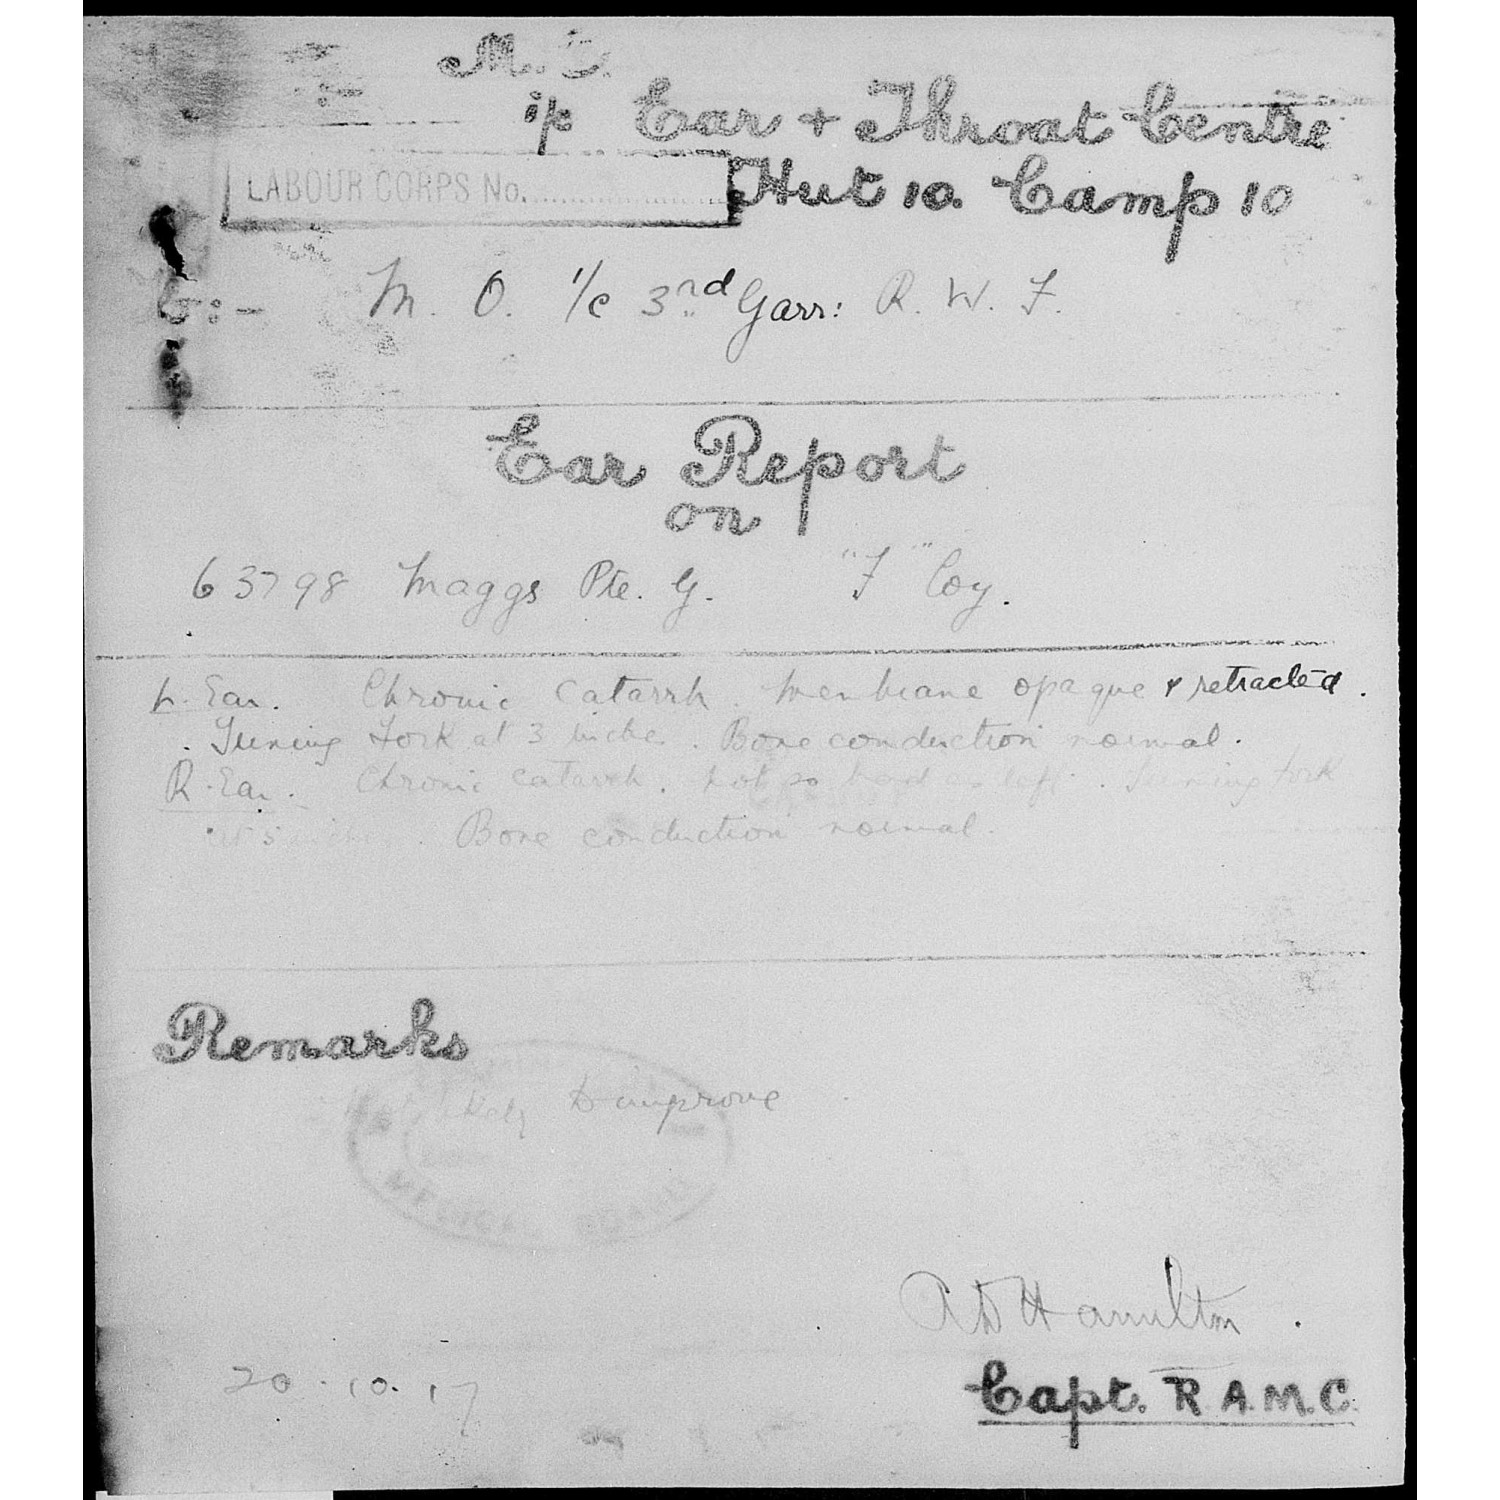 M. O.
i/c Ear + Throat Centre
LABOUR CORPS No. Hut 10. Camp 10
To:- M. O. i/c 3rd Garr: R. W. F.
Ear Report
on
63798 Maggs Pte. G. "F" Coy.
L. Ear. Chronic Catarrh. Membrane opaque & retracted.
Tuning Fork at 3 inches. Bone conduction normal.
R. Ear. Chronic catarrh. Not so bad as left. Tuning fork
at 5 inches. Bone conduction normal.
Remarks
Not likely to improve
MEDICAL BOARD
Hamilton.
20.10.17
Capt. R.A.M.C.